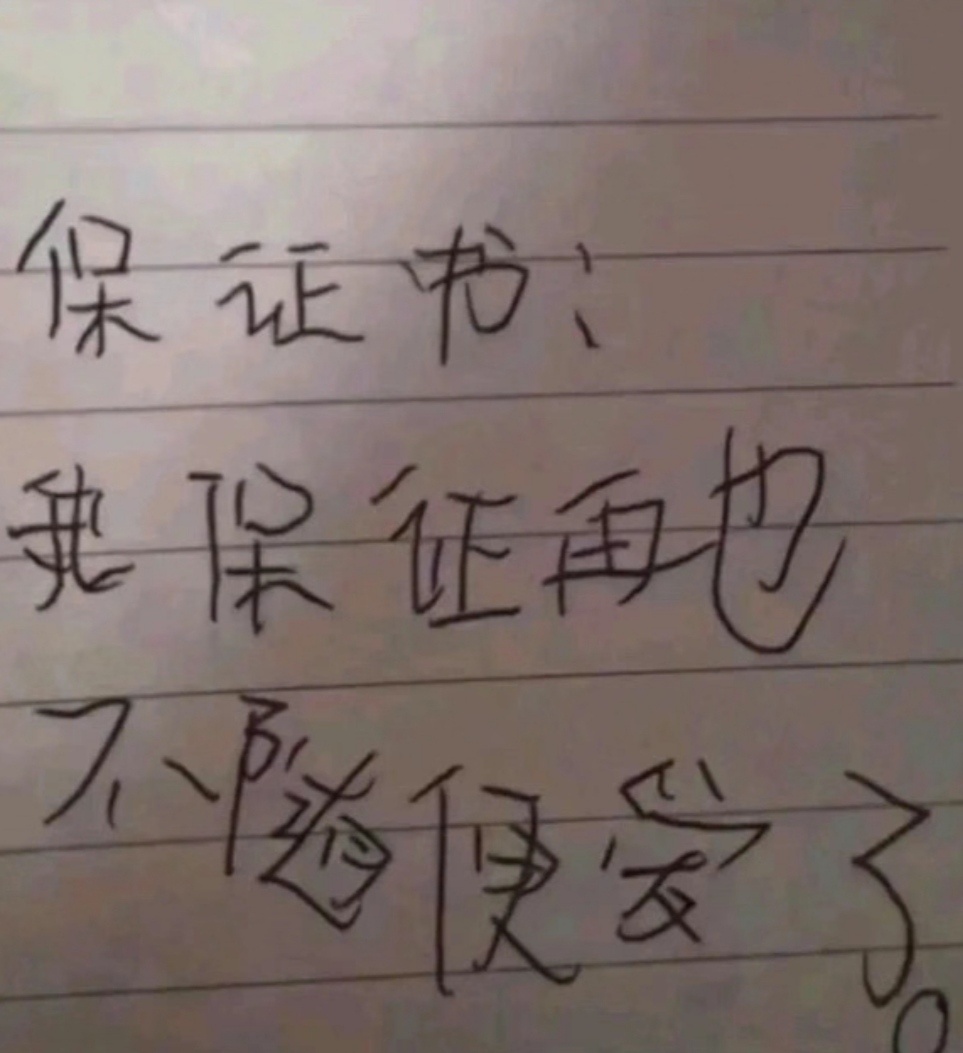 保证书：
我保证再也
不随便爱了。